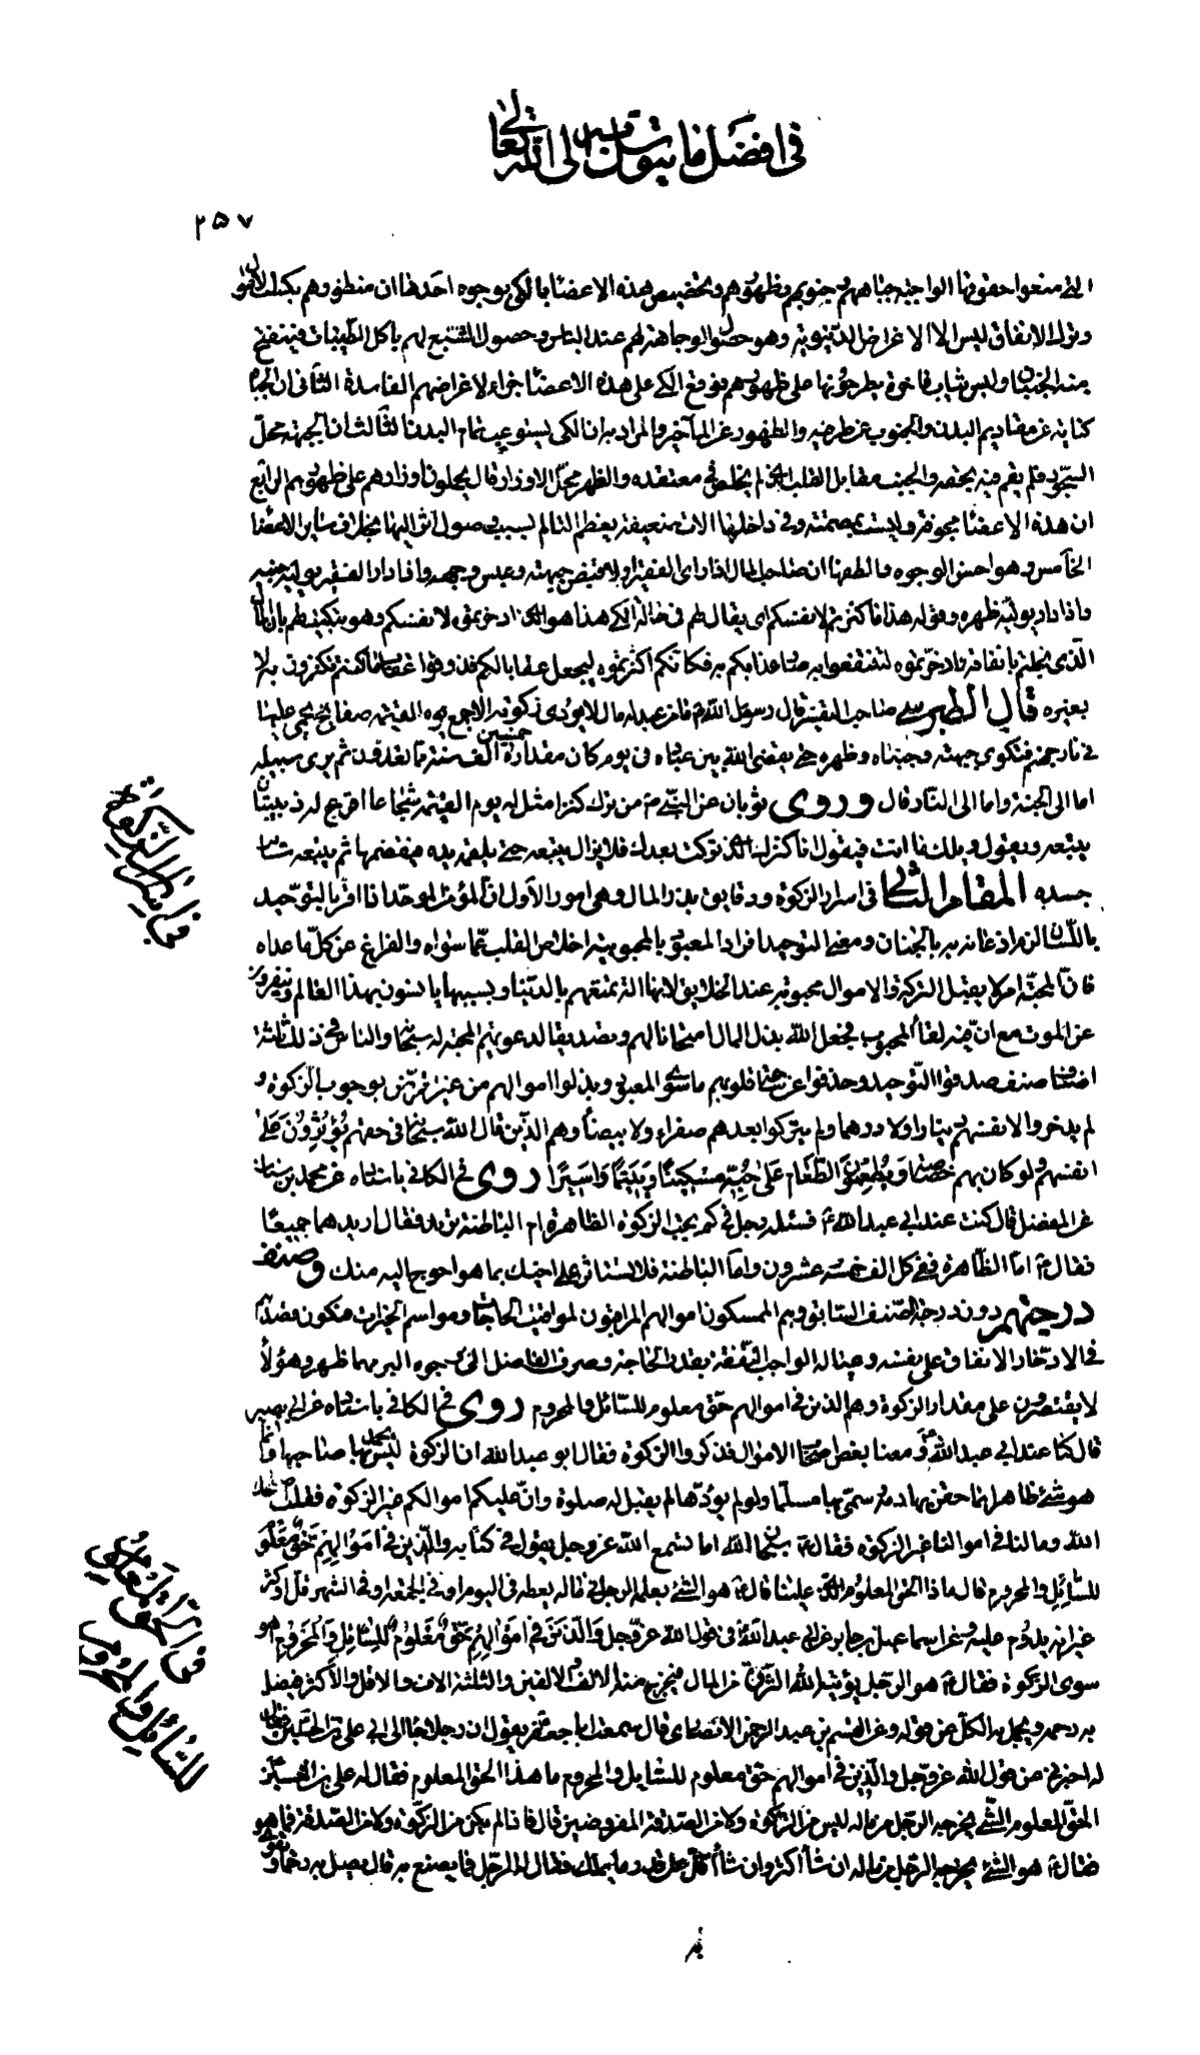 في افضل ما يتوسل به الى الله تعالى
٢٥٧
التي منعوا حقوقها الواجبة جباههم وجنوبهم وظهورهم وتخصيص هذه الاعضاء بالكي بوجوه احدها ان منظورهم بكسب الاموال
وترك الانفاق ليس الا الاغراض الدنيوية وهو حصول الوجاهة لهم عند الناس وحصول الشبع لهم باكل الطيبات فينتفخ
منه الجنبان ولبس ثياب فاخرة يطرحونها على ظهورهم فوقع الكي على هذه الاعضاء جزاء لاغراضهم الفاسدة الثاني ان الجباه
كناية عن مقاديم البدن والجنوب عن طرفيه والظهور عن المآخير والمراد به ان الكي يستوعب تمام البدن الثالث ان الجبهة محل
السجود فلم يقم فيه بحقه والجنب مقابل القلب الذي لم يخلص في معتقده والظهر محل الاوزار قال يحملون اوزارهم على ظهورهم الرابع
ان هذه الاعضاء مجوفة وليست بمصمتة وفي داخلها آلات ضعيفة يعظم التالم بسبب وصول اثر اليها بخلاف ساير الاعضاء
الخامس وهو احسن الوجوه والطفها ان صاحب المال اذا رأى الفقير اولا قبض جبهته وعبس وجهه واذا دار الفقير يوليه جنبه
واذا دار يوليه ظهره وقوله هذا ما كنزتم لانفسكم اى يقال لهم في حالة الكي هذا هو الذي ادخرتموه لانفسكم وهو تبكيت لهم بان المال
الذي بخلتم بانفاقه وادخرتموه لتنتفعوا به صار عذابكم به فكانكم اكثرتموه ليجعل عقابا لكم فذوقوا عقاب ما كنتم تكنزون به لا
بغيره قال الطبرسي صاحب التفسير قال رسول الله ص ما من عبد له مال لا يؤدى زكوته الا جمع يوم القيمة صفايح يحمى عليها
في نار جهنم فتكوى جبهته وجنباه وظهره حتى يقضى الله بين عباده في يوم كان مقداره خمسين الف سنة مما تعدون ثم يرى سبيله
اما الى الجنة واما الى النار قال وروى ثوبان عن النبي ص من ترك كنزا مثل له يوم القيمة شجاعا اقرع له زبيبتان
يتبعه ويقول ويلك ما انت فيقول انا كنزك الذي تركت بعدك فلا يزال يتبعه حتى يلقمه يده فيقضمها ثم يتبعه سائر
جسده المقام الثاني في اسرار الزكوة ودقايق بذل المال وهى امور الاول ان المؤمن الموحد اذا اقر بالتوحيد
باللسان لزم اذعانه به بالجنان ومعنى التوحيد افراد المعبود بالمحبوبية اخلاص القلب عما سواه والفراغ عن كل ما عداه
فان المحبة امر لا يقبل الشركة والاموال محبوبة عند الخلايق لانها آلة تمتعهم بالدنيا وبسببها يانسون بهذا العالم وينفرون
عن الموت مع ان فيه لقاء المحبوب فجعل الله بذل المال امتحانا لهم وتصديقا لدعويهم المحبة له سبحانه والناس في ذلك ثلثة
اصناف صنف صدقوا التوحيد وحذفوا عن قلوبهم ما سوى المعبود وبذلوا اموالهم من غير تربص بوجوب الزكوة و
لم يدخروا لانفسهم دينارا ولا درهما ولم يتركوا بعدهم صفراء ولا بيضاء وهم الذين قال الله سبحانه في حقهم يُؤْثِرُونَ عَلى
انفسهم ولو كان بهم خصاصة وَيُطْعِمُونَ الطَّعَامَ عَلَى حُبِّهِ مِسْكِينًا وَيَتِيمًا وَاَسِيرًا روى في الكافي باسناده عن محمد بن سنان
عن المفضل قال كنت عند ابي عبد الله ع فسئله رجل في كم يجب الزكوة الظاهرة ام الباطنة تريد فقال اريدهما جميعا
فقال ع اما الظاهرة ففي كل الف خمسة عشرون واما الباطنة فلا تستاثر على اخيك بما هو احوج اليه منك وصنف
درجتهم دون درجة الصنف السابق وهم الممسكون اموالهم المراقبون لمواقيت الحاجات ومواسم الخيرات فيكون قصدهم
في الادخار الانفاق على نفسه وعياله الواجب النفقة بقدر الحاجة وصرف الفاضل الى وجوه البر مهما ظهر وهؤلاء
لا يقتصرون على مقدار الزكوة وهم الذين في اموالهم حق معلوم للسائل والمحروم روى في الكافي باسناده عن ابي بصير
قال كنا عند ابي عبد الله ع ومعنا بعض اصحاب الاموال فذكروا الزكوة فقال ابو عبد الله ان الزكوة ليس يحمد بها صاحبها وانما
هو شئ ظاهر انما حقن بها دمه وسمى بها مسلما ولو لم يؤدها لم يقبل له صلوة وان عليكم في اموالكم غير الزكوة فقلت اصلحك
الله وما لنا في اموالنا غير الزكوة فقال ع سبحان الله اما تسمع الله عز وجل يقول في كتابه وَالَّذِينَ فِي اَمْوَالِهِمْ حَقٌّ مَعْلُومٌ
للسَّائِلِ والمحروم قال ماذا الحق المعلوم الذي علينا قال ع هو الشئ يعمله الرجل في ماله يعطيه في اليوم او في الجمعة او في الشهر قل او كثر
غير انه يدوم عليه وعن اسماعيل بن جابر عن ابي عبد الله ع في قول الله عز وجل وَالَّذِينَ فِي اَمْوَالِهِمْ حَقٌّ مَعْلُومٌ لِلسَّائِلِ وَالْمَحْرُومِ اهو
سوى الزكوة فقال ع هو الرجل يؤتيه الله الثروة من المال فيخرج منه الالف والالفين والثلثة الاف والاقل والاكثر فيصل
به رحمه ويحمل به الكل عن قومه وعن القسم بن عبد الرحمن الانصارى قال سمعت ابا جعفر يقول ان رجلا جاء الى ابي علي بن الحسين فقال
له اخبرني عن قول الله عز وجل والذين في اموالهم حق معلوم للسايل والمحروم ما هذا الحق المعلوم فقال له علي بن الحسين
الحق المعلوم الشئ يخرجه الرجل من ماله ليس من الزكوة ولا من الصدقة المفروضتين قال فاذا لم يكن من الزكوة ولا من الصدقة فما هو
فقال ع هو الشئ يخرجه الرجل من ماله ان شاء اكثر وان شاء اقل على قدر ما يملك فقال له الرجل فما يصنع به قال يصل به رحما ويقوى
به
في اسرار الزكوة
للسائل والمحروم